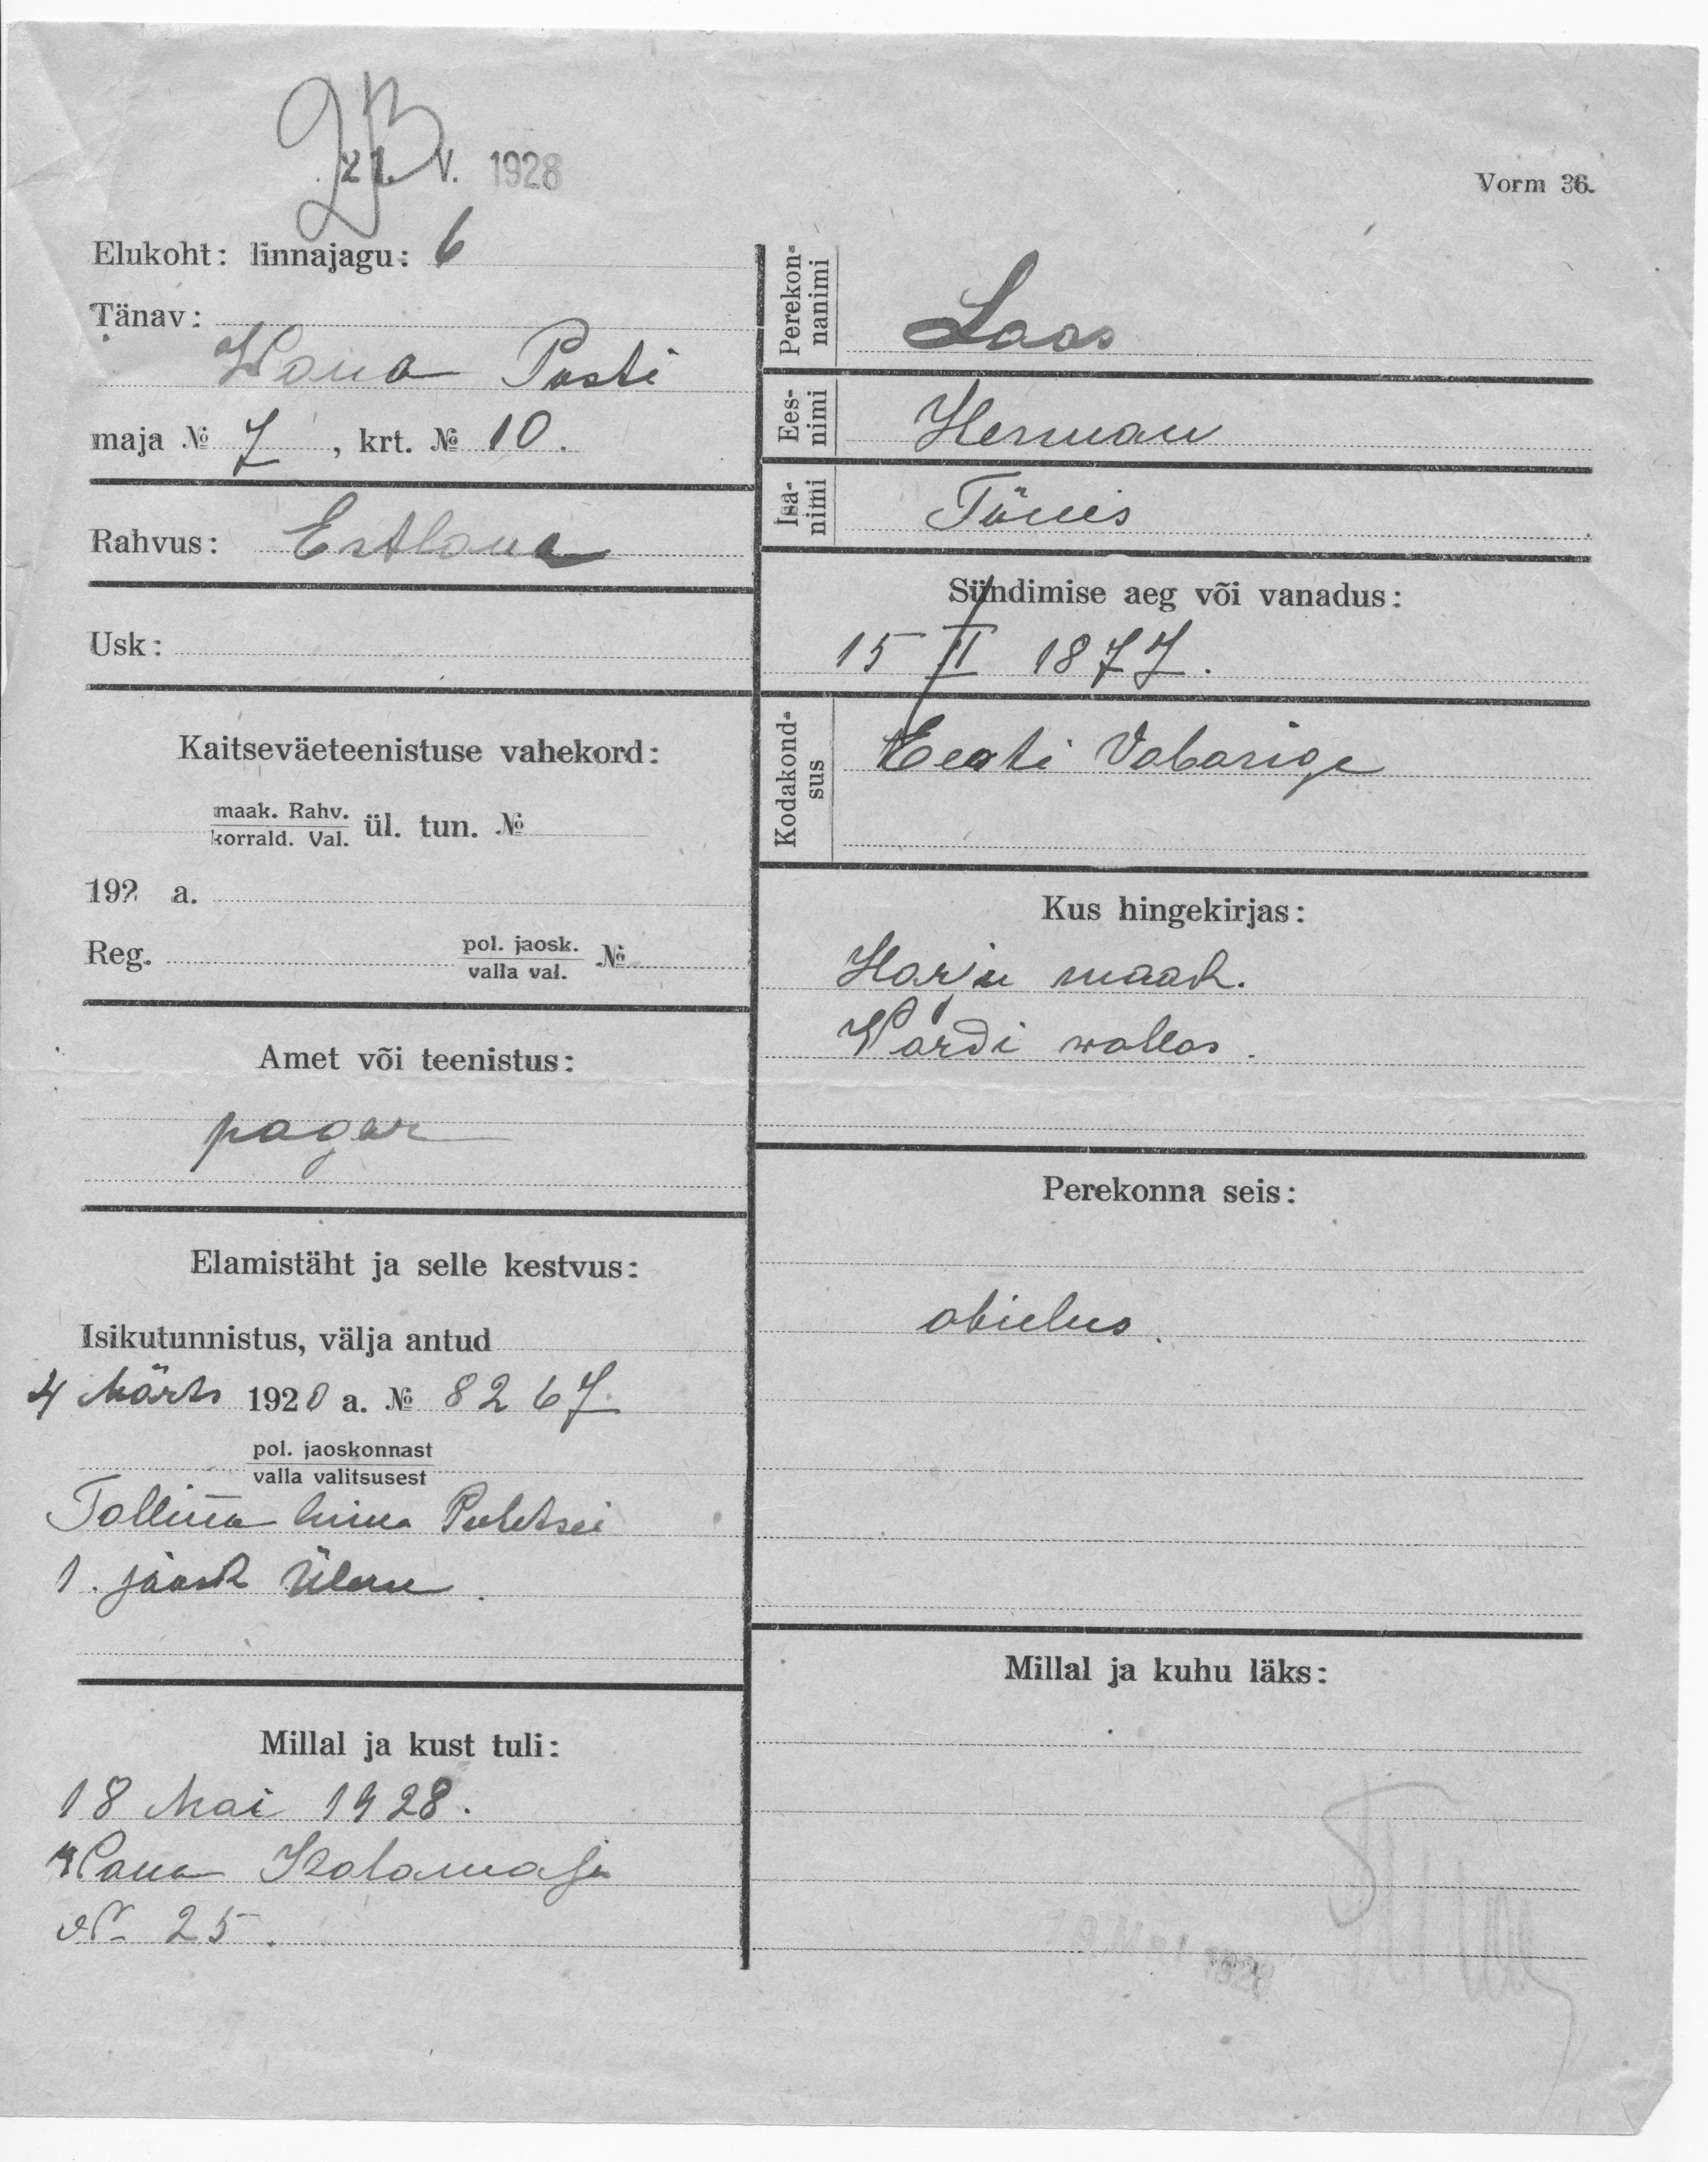 21. V. 1928
Vorm 36.
Elukoht: linnajagu: 6
Tänav:
Wana Posti
maja № 7, krt. № 10.
Rahvus: Estlane
Usk:
Kaitseväeteenistuse vahekord:
maak. Rahv.
korrald. Val. ül. tun. №
192 a.
Reg. pol. jaosk.
valla val. №
Amet või teenistus:
pagar
Elamistäht ja selle kestvus:
Isikutunnistus, välja antud
4 Märts 1920 a. № 8267
pol. jaoskonnast
valla valitsusest
Tallinna linna Politsei
1. jaosk Ülem
Millal ja kust tuli:
18 Mai 1928.
Wana Kalamaja
№ 25.
Perekon-
nanimi
Laas
Ees-
nimi
Herman
Isa-
nimi
Tõnis
Sündimise aeg või vanadus:
15 II 1877.
Kodakond-
sus
Eesti Vabarige
Kus hingekirjas:
Harju maak.
Wardi wallas.
Perekonna seis:
abielus.
Millal ja kuhu läks:
19 Mai 1928